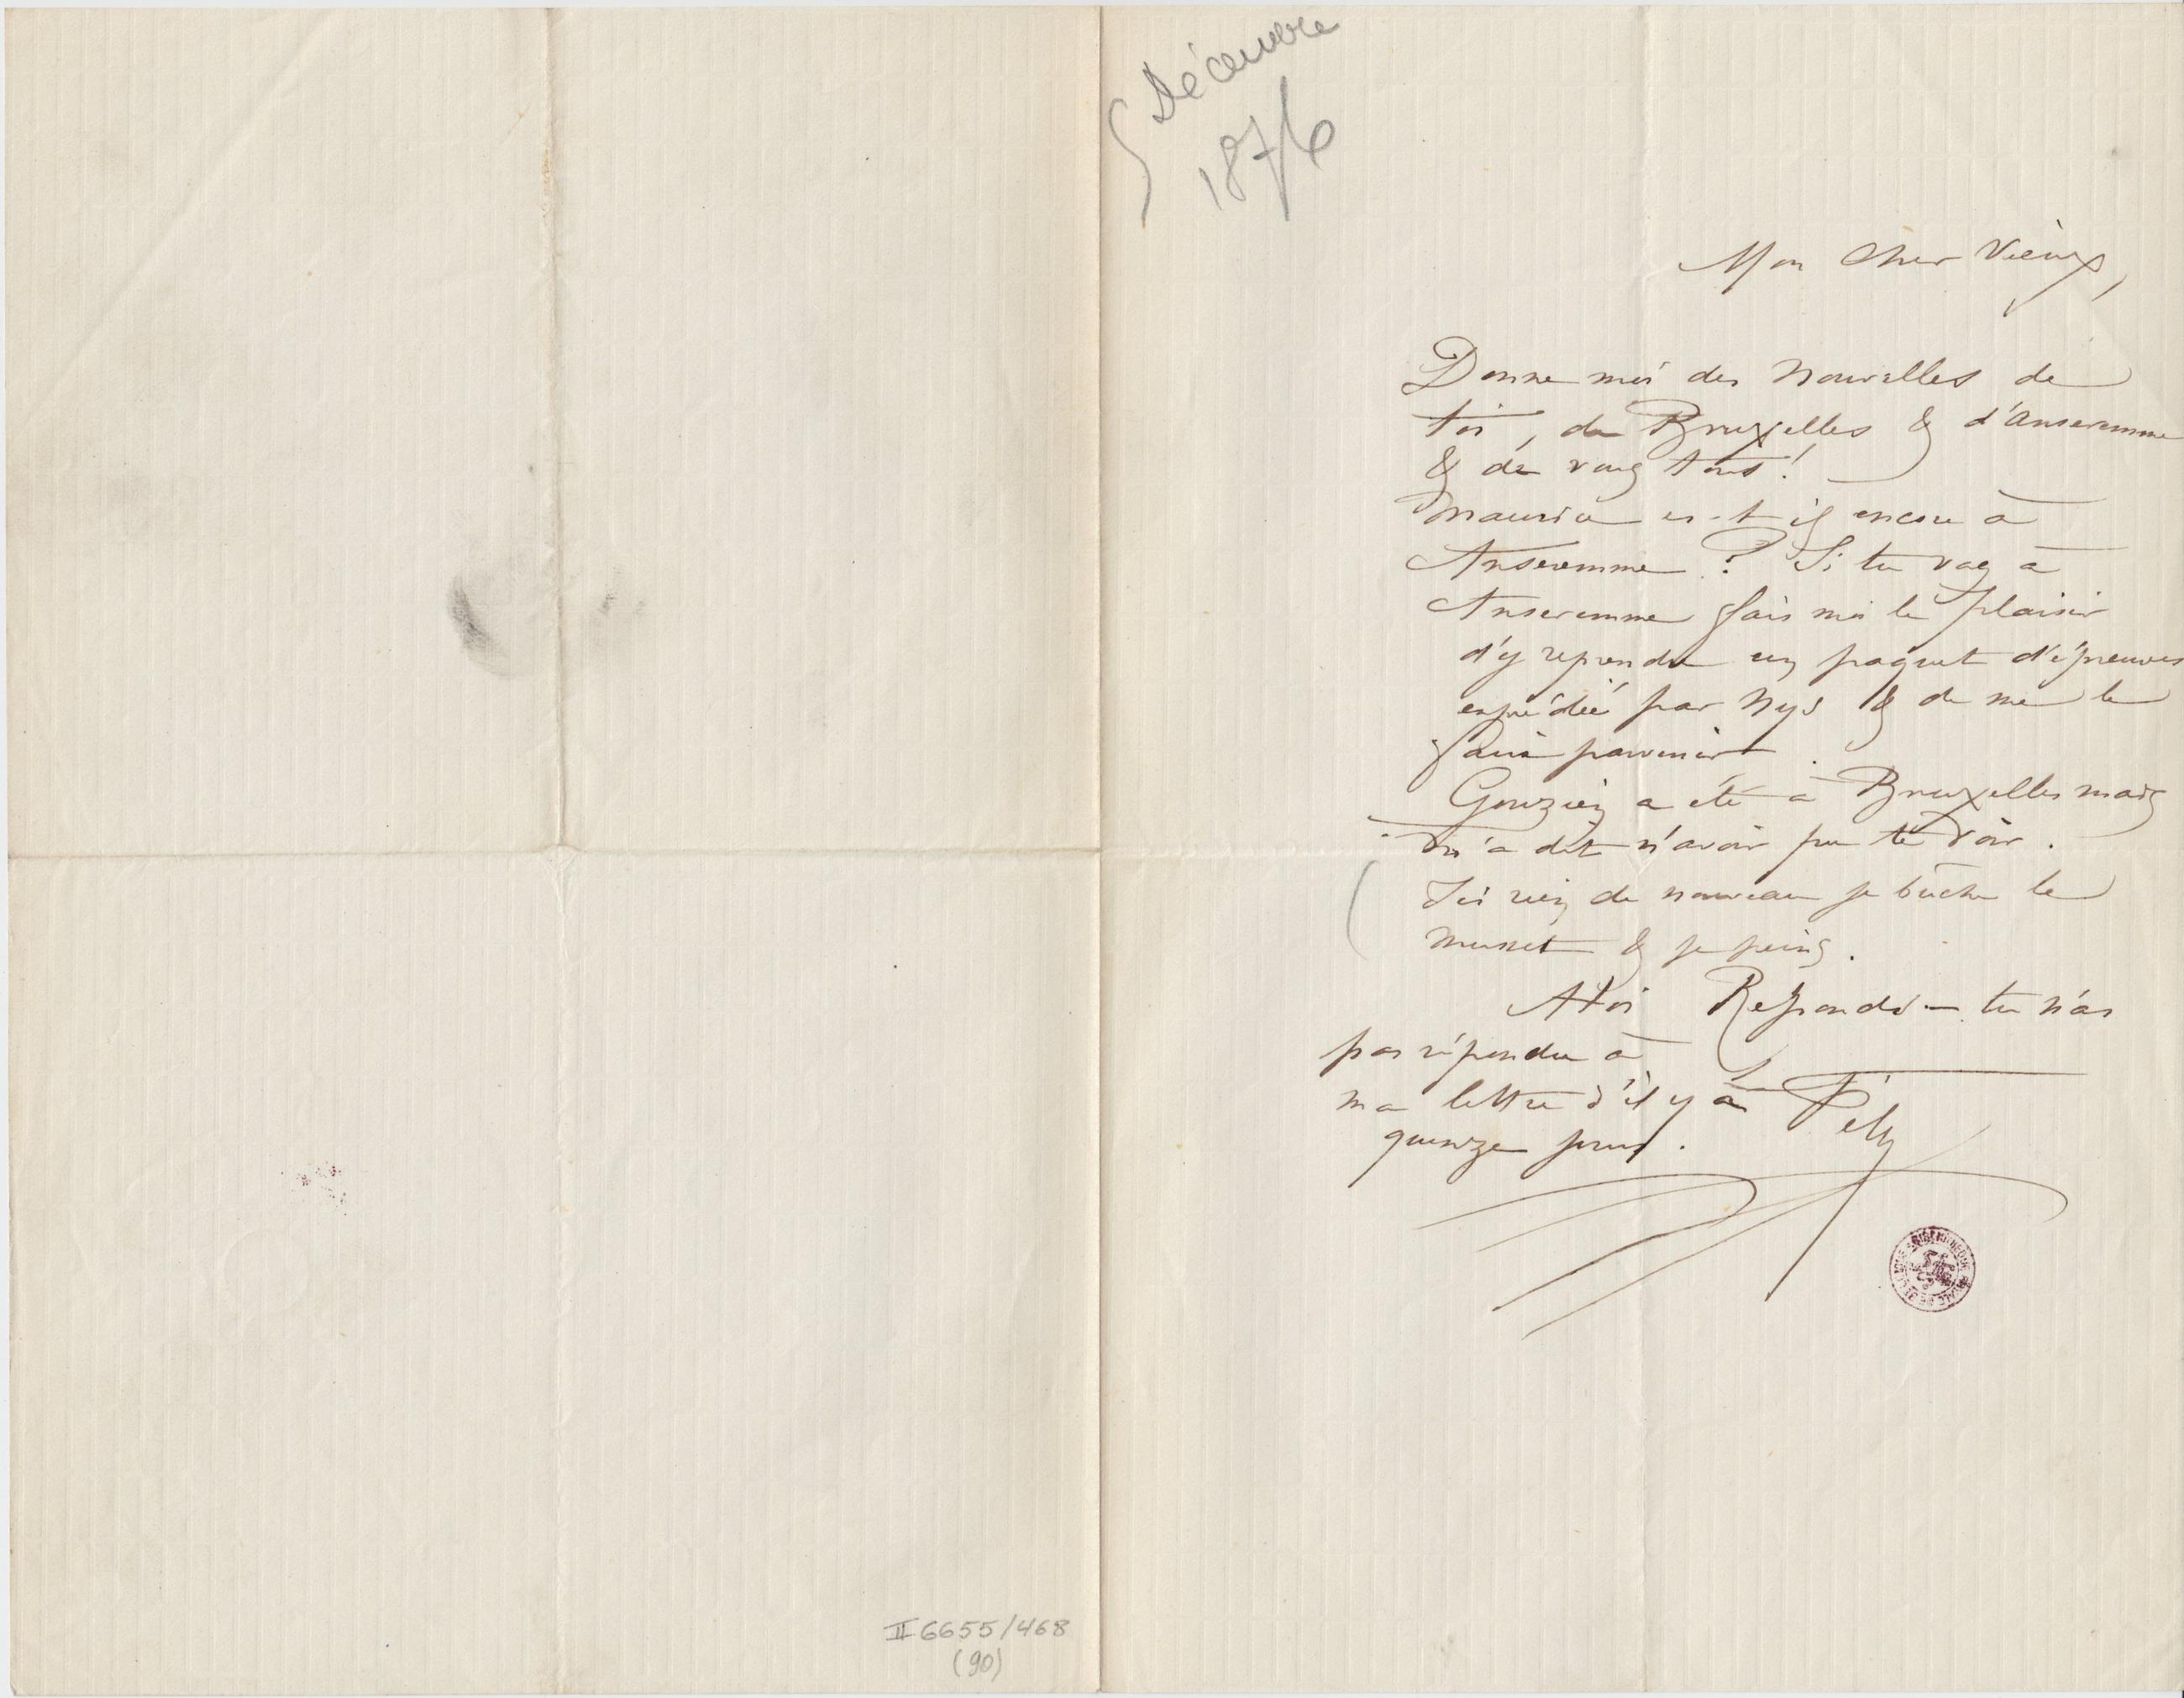 Décembre
1876
Mon cher Vieux,
Donne moi des nouvelles de
toi, de Bruxelles & d'anseremme
& de vous tous !
Maurice es-t il encore à
Anseremme ? Si tu vas à
Anseremme fais moi le plaisir
d'y reprendre un paquet d'épreuves
expédié par Nys & de me le
faire parvenir.
Gouzien a été à Bruxelles mais
m'a dit n'avoir pu te voir.
Ici rien de nouveau je bûche le
musset & je peins.
A toi Reponds — tu n'as
pas répondu à
ma lettre d'il y a
quinze jours.
Fély
II 6655/468
(90)